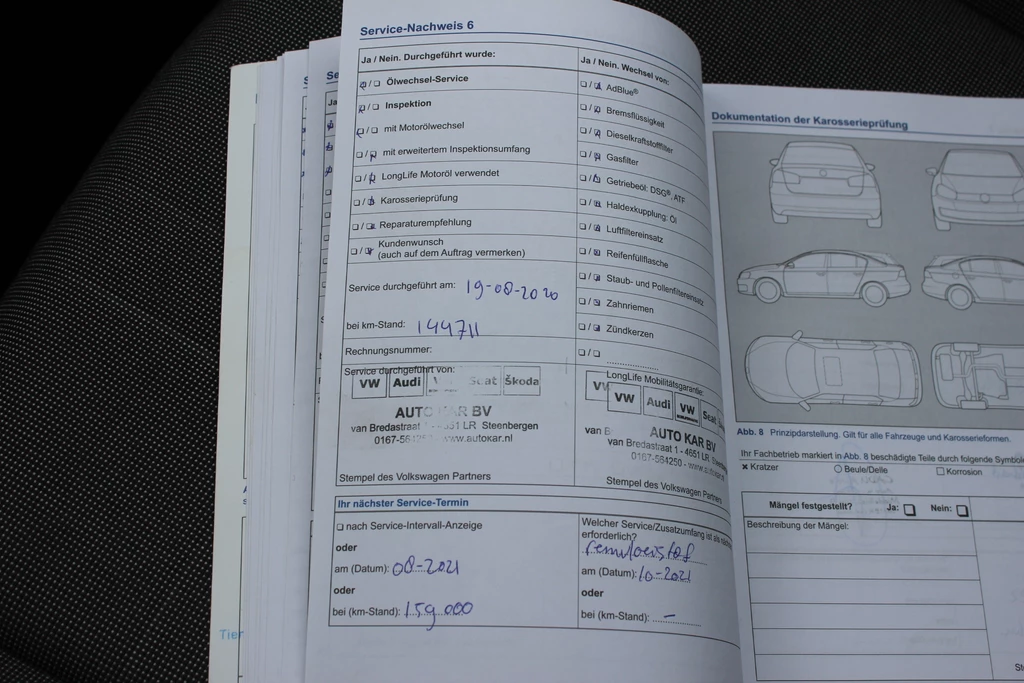 Service-Nachweis 6
Ja / Nein. Durchgeführt wurde:
Ölwechsel-Service
Inspektion
mit Motorölwechsel
mit erweitertem Inspektionsumfang
LongLife Motoröl verwendet
Karosserieprüfung
Reparaturempfehlung
Kundenwunsch
(auch auf dem Auftrag vermerken)
Service durchgeführt am: 19-08-2020
bei km-Stand: 144711
Rechnungsnummer:
Service durchgeführt von:
VW Audi Seat Škoda
AUTO KAR BV
van Bredastraat LR Steenbergen
www.autokar.nl
Stempel des Volkswagen Partners
Ja / Nein. Wechsel von:
AdBlue®
Bremsflüssigkeit
Dieselkraftstofffilter
Gasfilter
Getriebeöl: DSG®, ATF
Haldexkupplung: Öl
Luftfiltereinsatz
Reifenfüllflasche
Staub- und Pollenfiltereinsatz
Zahnriemen
Zündkerzen
LongLife Mobilitätsgarantie:
VW
VW Audi VW Seat
AUTO KAR BV
van Bredastraat 1 - 4651 LR Steenbergen
0167-564250 - www.autokar
Stempel des Volkswagen Partners
Ihr nächster Service-Termin
nach Service-Intervall-Anzeige
oder
am (Datum): 08-2021
oder
bei (km-Stand): 159.000
Welcher Service/Zusatzumfang ist als
erforderlich?
remvloeistof
am (Datum): 10-2021
oder
bei (km-Stand): -
Dokumentation der Karosserieprüfung
Abb. 8 Prinzipdarstellung. Gilt für alle Fahrzeuge und Karosserieformen.
Ihr Fachbetrieb markiert in Abb. 8 beschädigte Teile durch folgende Symbole
Kratzer Beule/Delle Korrosion
Mängel festgestellt? Ja: Nein:
Beschreibung der Mängel:
Tier